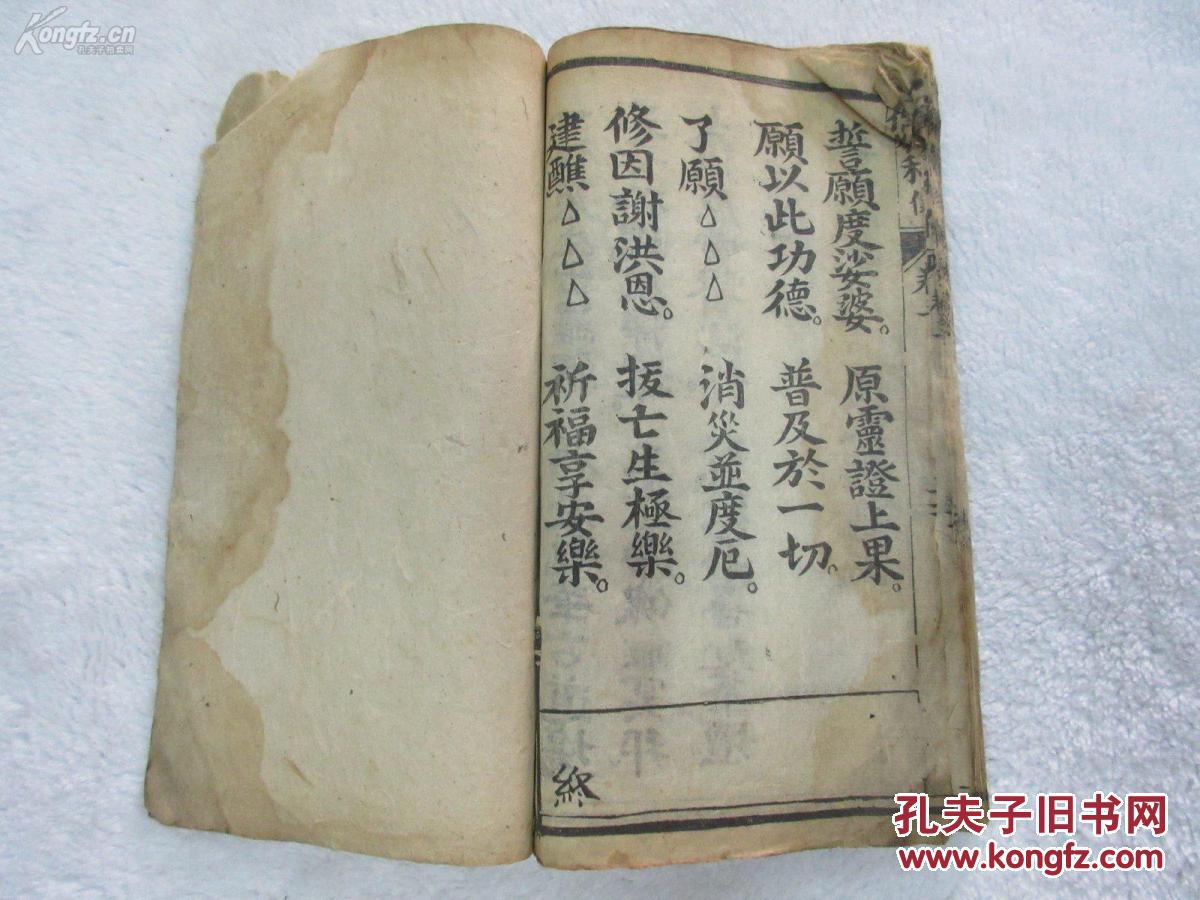 誓願度娑婆。 原靈證上果。
願以此功德。 普及於一切。
了願△△△ 消災並度厄。
修因謝洪恩。 拔亡生極樂。
建醮△△△ 祈福享安樂。
終
Kongfz.cn
孔夫子拍卖网
孔夫子旧书网
www.kongfz.com